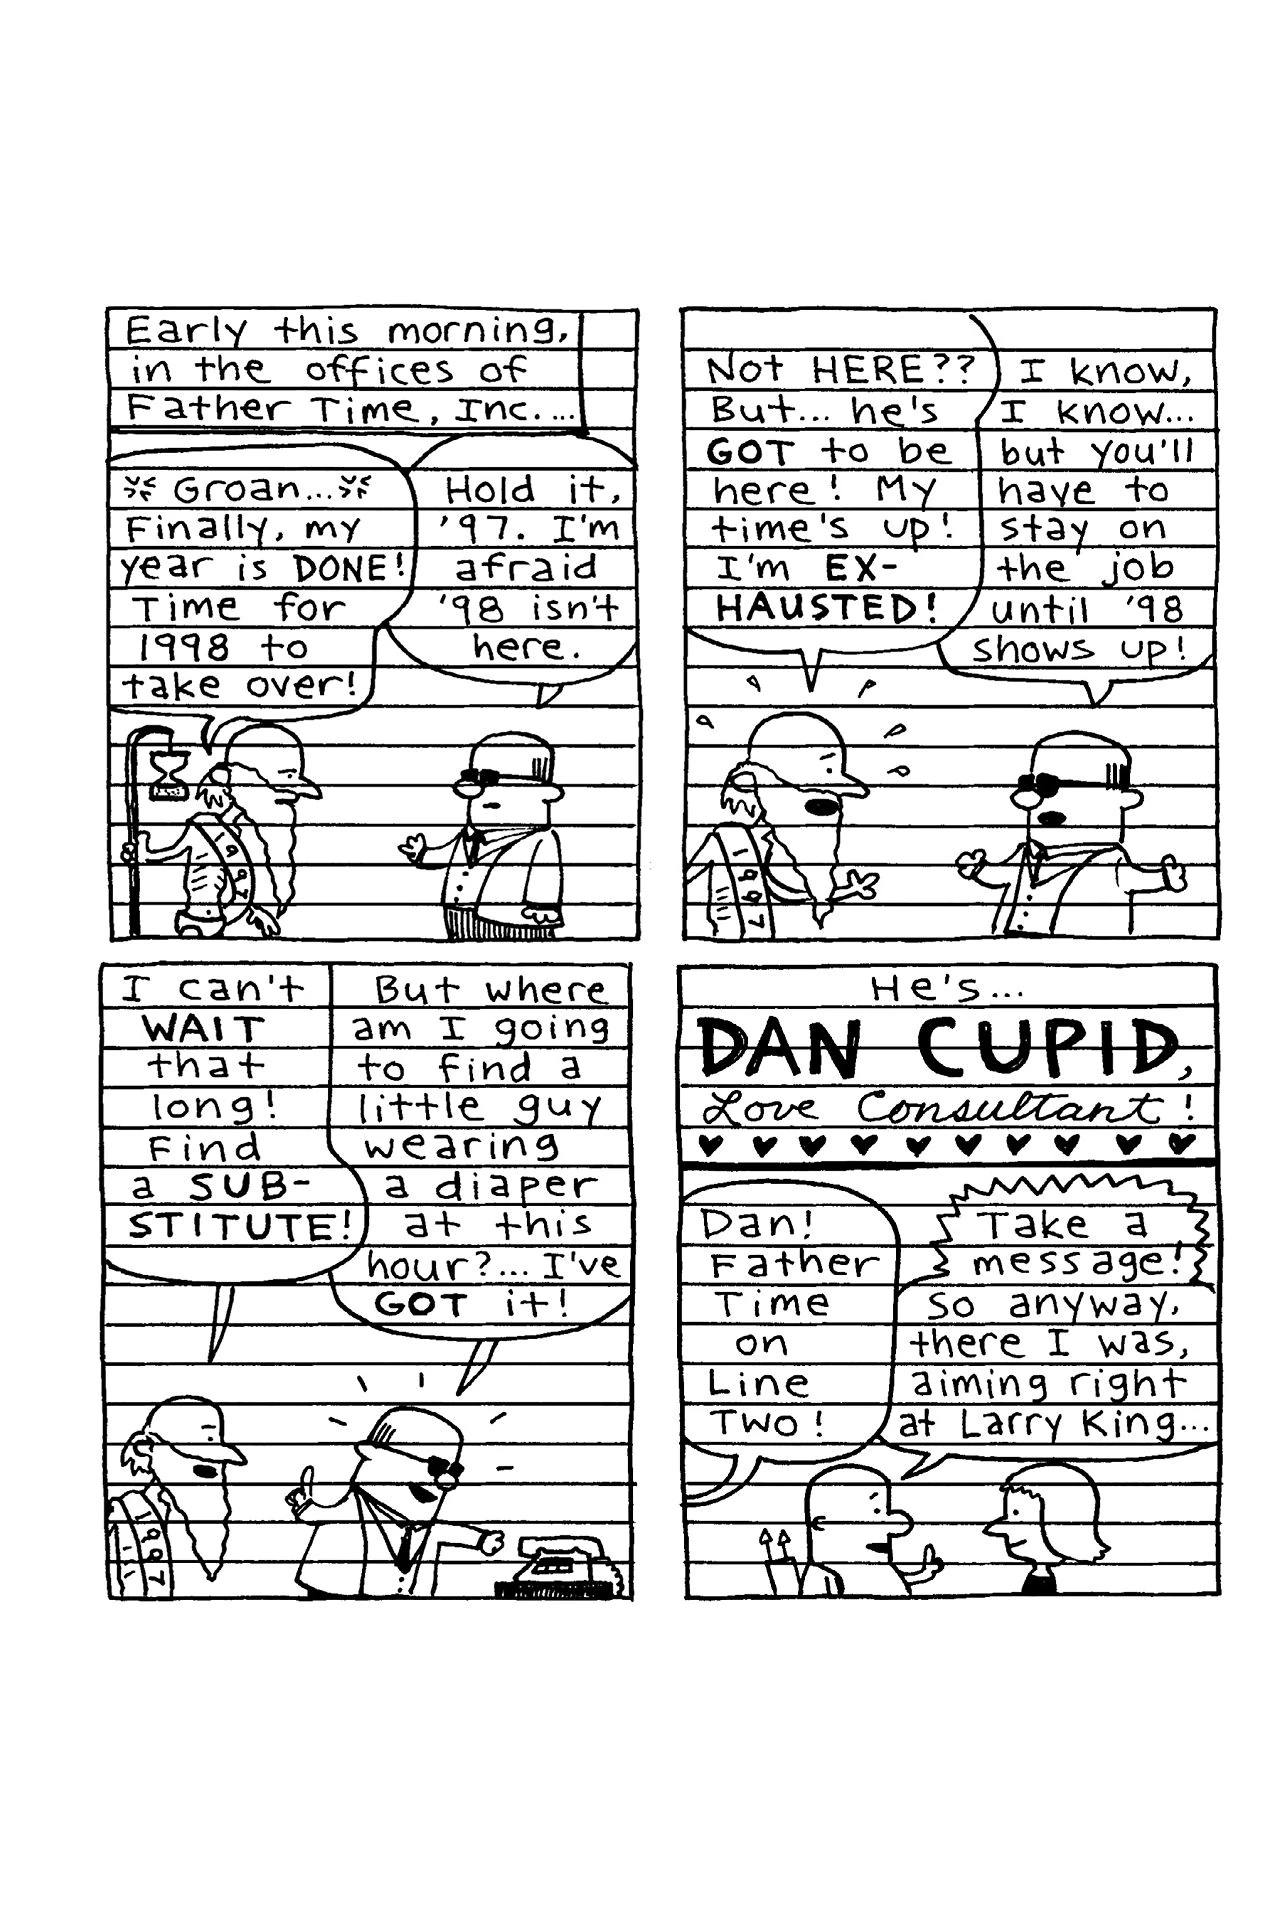 Early this morning,
in the offices of
Father Time, Inc....
Groan...
Finally, my
year is DONE!
Time for
1998 to
take over!
Hold it,
'97. I'm
afraid
'98 isn't
here.
1997
Not HERE??
But... he's
GOT to be
here! My
time's up!
I'm EX-
HAUSTED!
I know,
I know...
but you'll
have to
stay on
the job
until '98
shows up!
1997
I can't
WAIT
that
long!
Find
a SUB-
STITUTE!
But where
am I going
to find a
little guy
wearing
a diaper
at this
hour?... I've
GOT it!
1997
He's...
DAN CUPID,
Love Consultant!
Dan!
Father
Time
on
Line
Two!
Take a
message!
So anyway,
there I was,
aiming right
at Larry King...